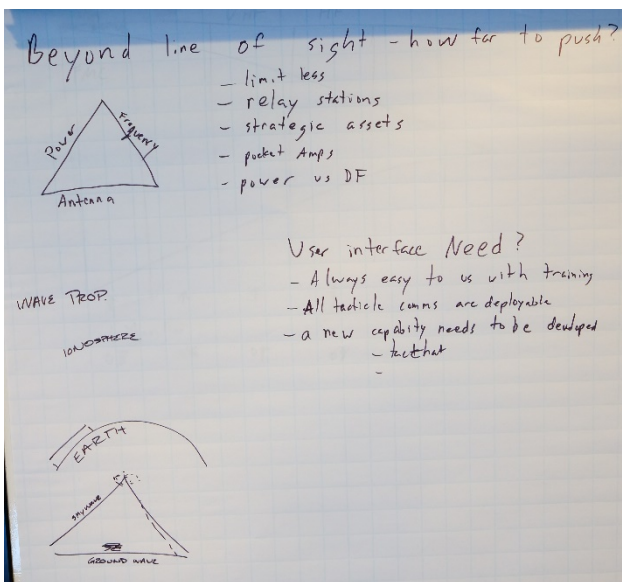 Beyond line of sight - how far to push?
- limit less
- relay stations
- strategic assets
- pocket Amps
- power vs DF
Power
Frequency
Antenna
User interface Need?
- Always easy to us with training
- All tacticle comms are deployable
- a new capabity needs to be developed
-
WAVE PROP.
IONOSPHERE
EARTH
SKYWAVE
GROUND WAVE